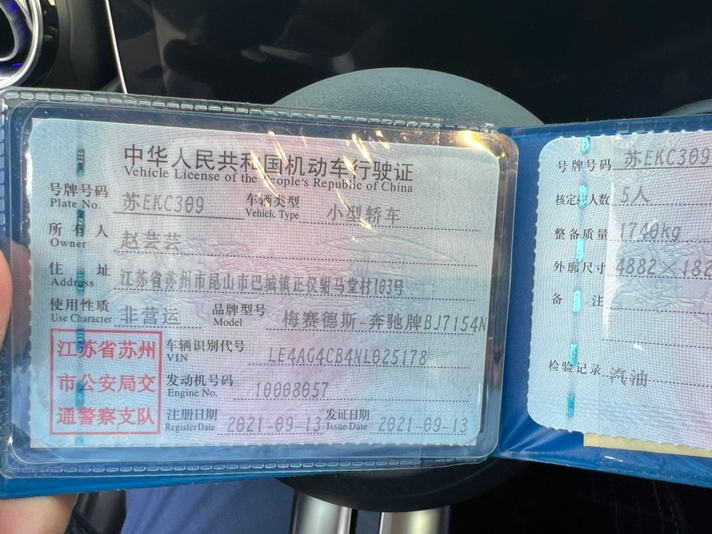 中华人民共和国机动车行驶证
Vehicle License of the People's Republic of China
号牌号码 苏EKC309 车辆类型 小型轿车
Plate No. Vehicle Type
所有人 赵芸芸
Owner
住址 江苏省苏州市昆山市巴城镇正仪驸马堂村103号
Address
使用性质 非营运 品牌型号 梅赛德斯-奔驰牌BJ7154N
Use Character Model
江苏省苏州
市公安局交
通警察支队
车辆识别代号 LE4AG4CB4NL025178
VIN
发动机号码 10008057
Engine No.
注册日期 2021-09-13 发证日期 2021-09-13
Register Date Issue Date
号牌号码 苏EKC309
核定载人数 5人
整备质量 1740kg
外廓尺寸 4882×182
备注
检验记录 汽油